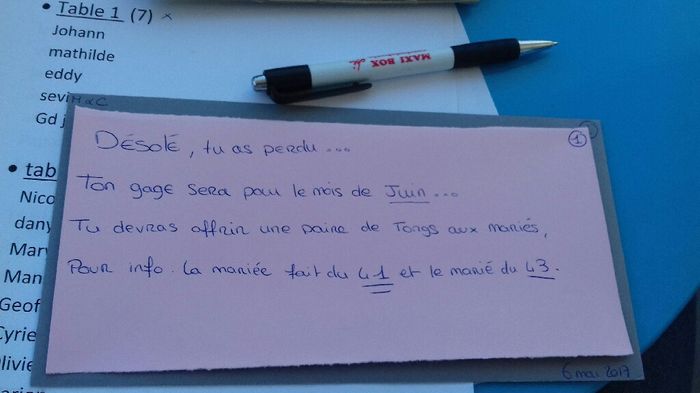 • Table 1 (7) x
Johann
mathilde
eddy
Gd j
MAXI BOX
M & C
1
Désolé, tu as perdu...
Ton gage sera pour le mois de Juin...
Tu devras offrir une paire de Tongs aux mariés,
Pour info. La mariée fait du 41 et le marié du 43.
6 mai 2017
• tab
Nico
dany
Man
Geof
Cyrie